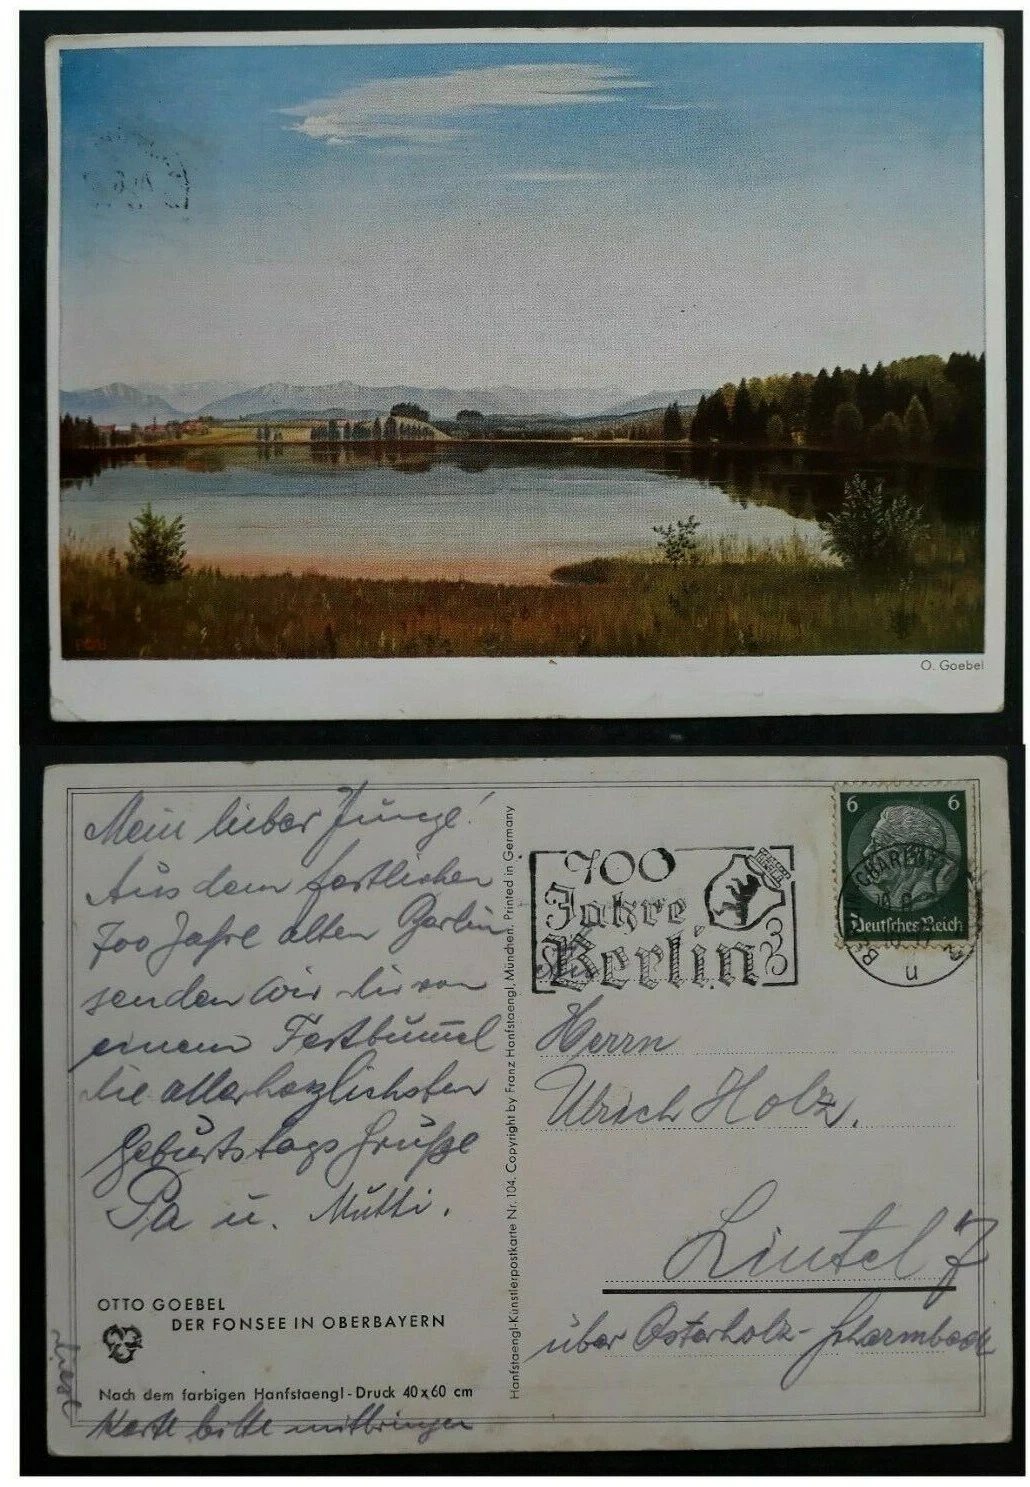 O. Goebel
Mein lieber Junge!
Aus dem festlichen
700 Jahre alten Berlin
senden wir dir von
einem Festbummel
die allerherzlichsten
Geburtstags Grüße
Pa u. Mutti.
OTTO GOEBEL
DER FONSEE IN OBERBAYERN
Nach dem farbigen Hanfstaengl-Druck 40x60 cm
diese
Karte bitte mitbringen
Hanfstaengl-Künstlerpostkarte Nr. 104. Copyright by Franz Hanfstaengl, München. Printed in Germany
700
Jahre
Berlin
6 6
Deutsches Reich
CHARL
u
Herrn
Ulrich Holz.
Lintel 7
über Osterholz-Scharmbeck